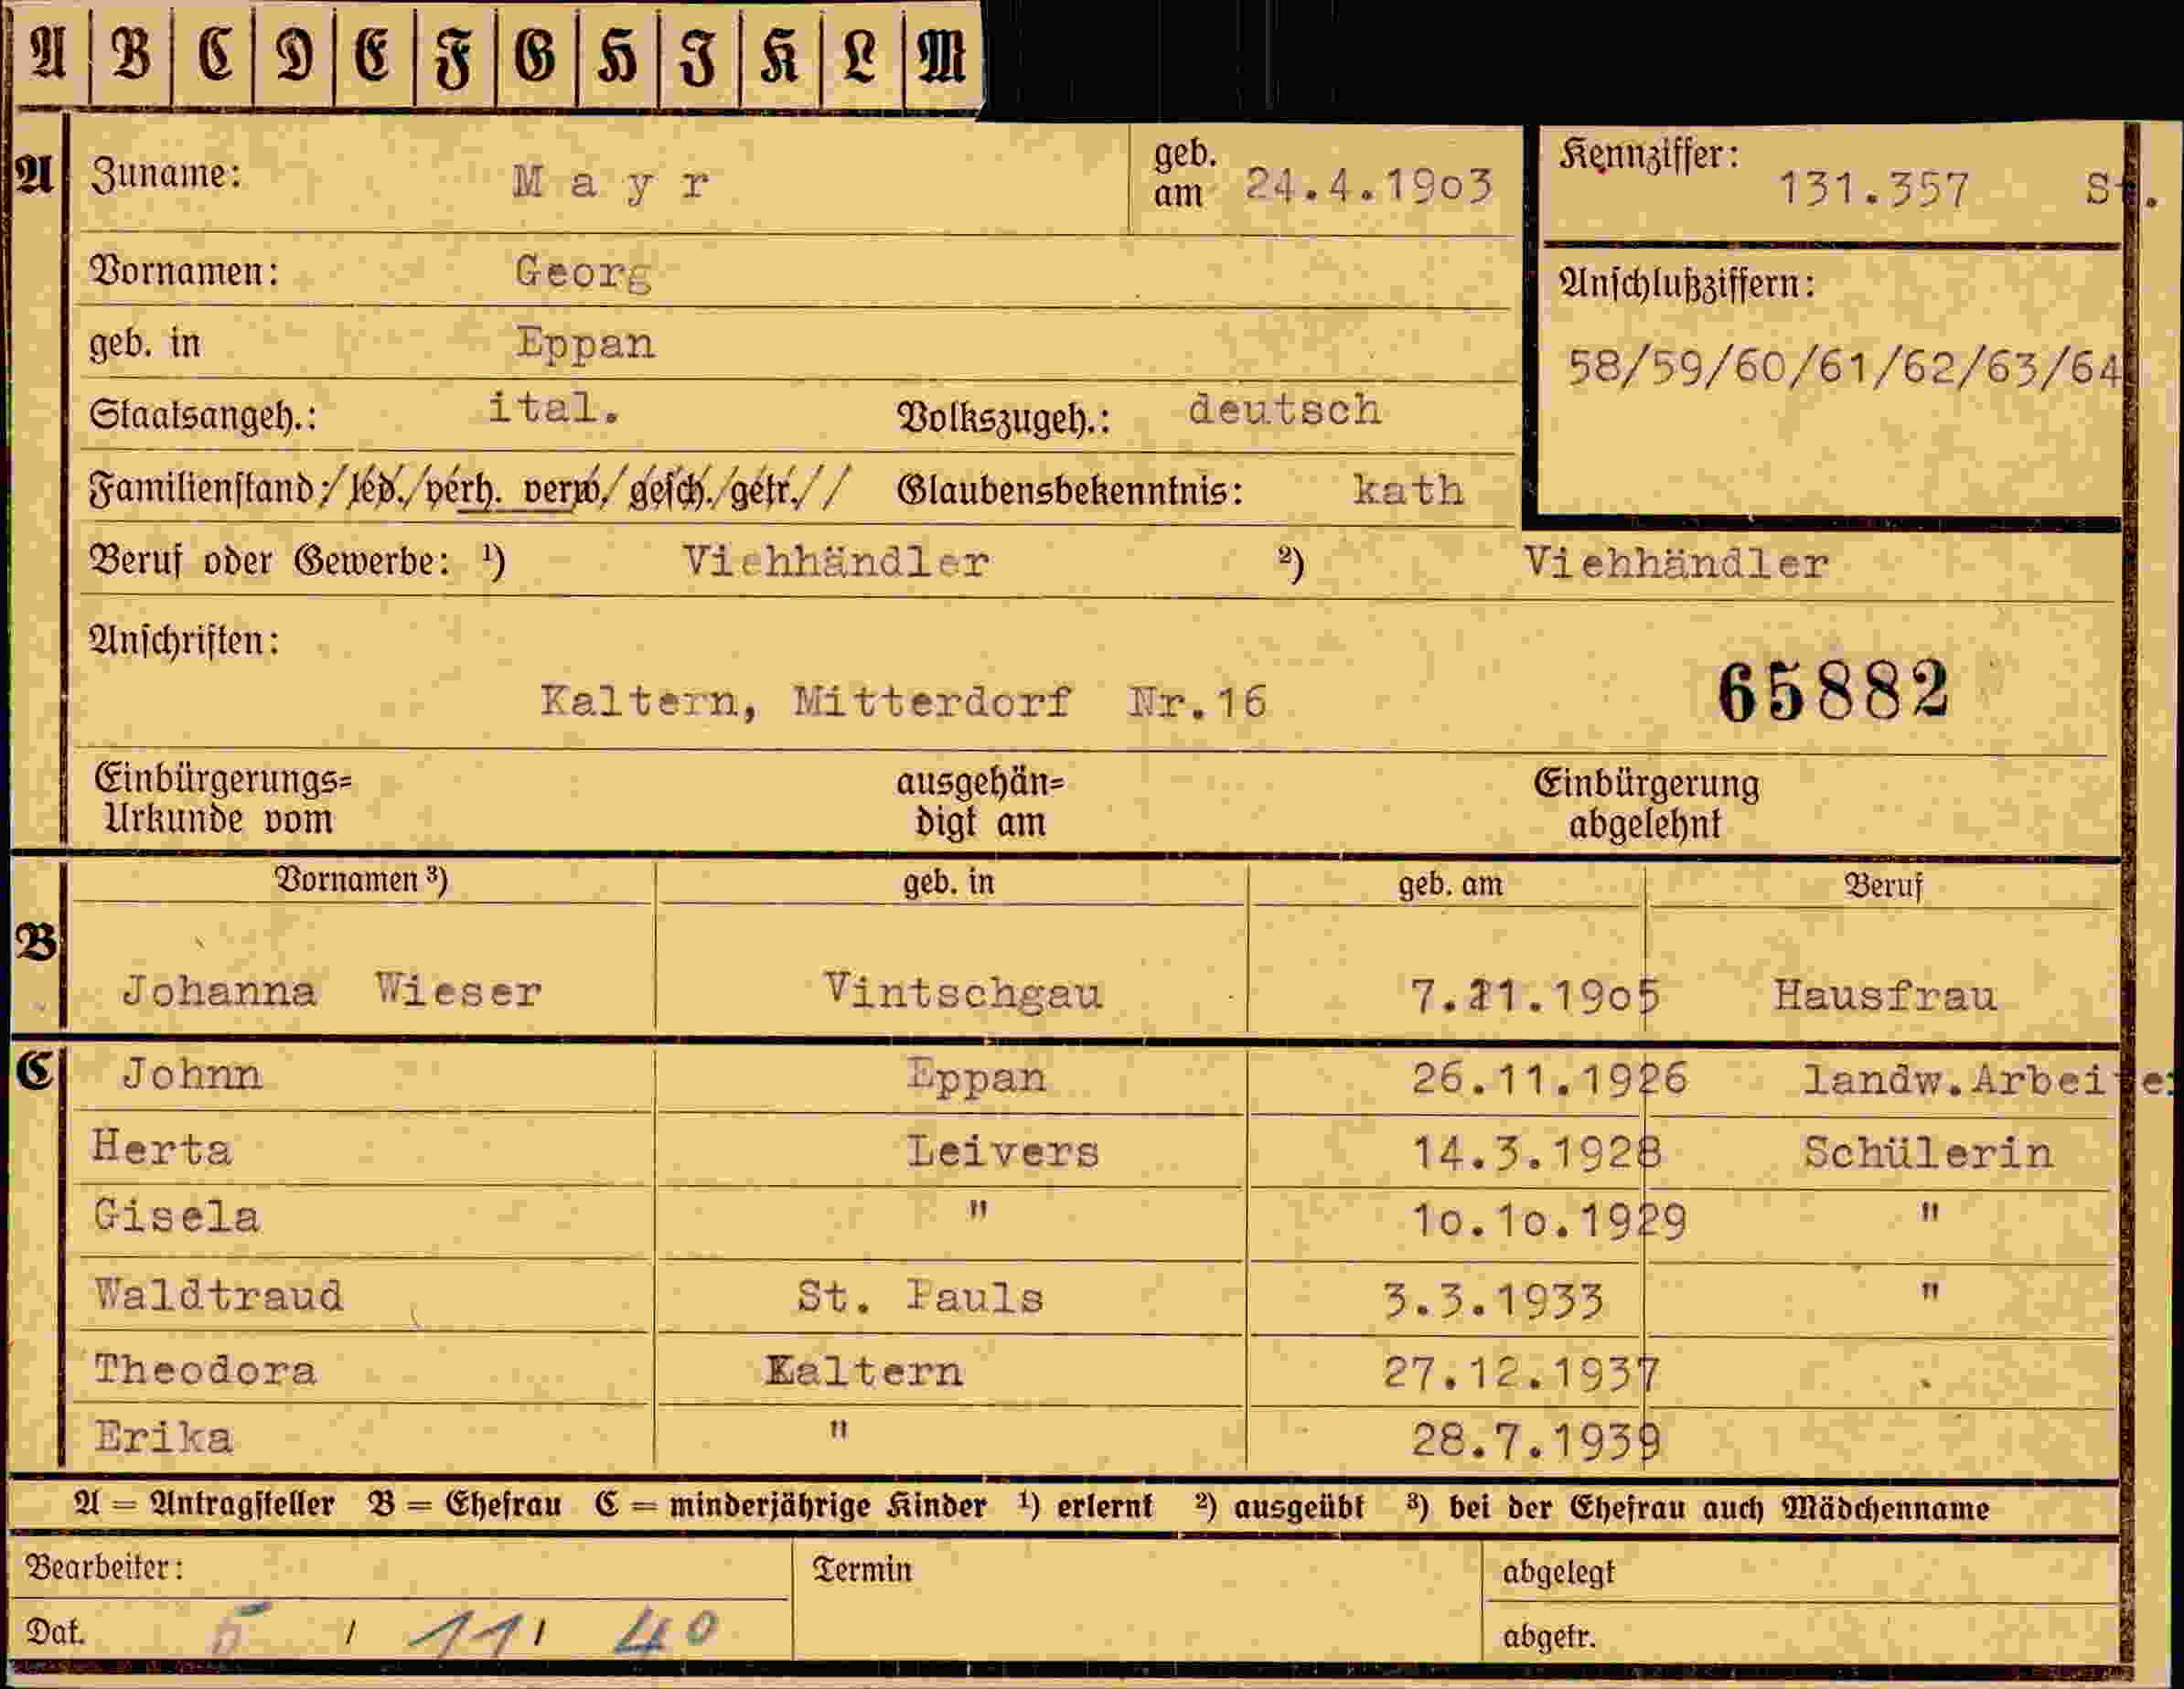 A B C D E F G H I K L M
A Zuname: Mayr geb. am 24.4.1903 Kennziffer: 131.357 St.
Vornamen: Georg Anschlußziffern:
geb. in Eppan 58/59/60/61/62/63/64
Staatsangeh.: ital. Volkszugeh.: deutsch
Familienstand: led. verh. verw. gesch. getr. Glaubensbekenntnis: kath
Beruf oder Gewerbe: ¹) Viehhändler ²) Viehhändler
Anschriften:
Kaltern, Mitterdorf Nr.16 65882
Einbürgerungs= ausgehän= Einbürgerung
Urkunde vom digt am abgelehnt
Vornamen ³) geb. in geb. am Beruf
B
Johanna Wieser Vintschgau 7.11.1905 Hausfrau
C Johnn Eppan 26.11.1926 landw.Arbeiter
Herta Leivers 14.3.1928 Schülerin
Gisela " 10.10.1929 "
Waldtraud St. Pauls 3.3.1933 "
Theodora Kaltern 27.12.1937
Erika " 28.7.1939
A = Antragsteller B = Ehefrau C = minderjährige Kinder ¹) erlernt ²) ausgeübt ³) bei der Ehefrau auch Mädchenname
Bearbeiter: Termin abgelegt
Dat. 5 / 11 / 40 abgetr.